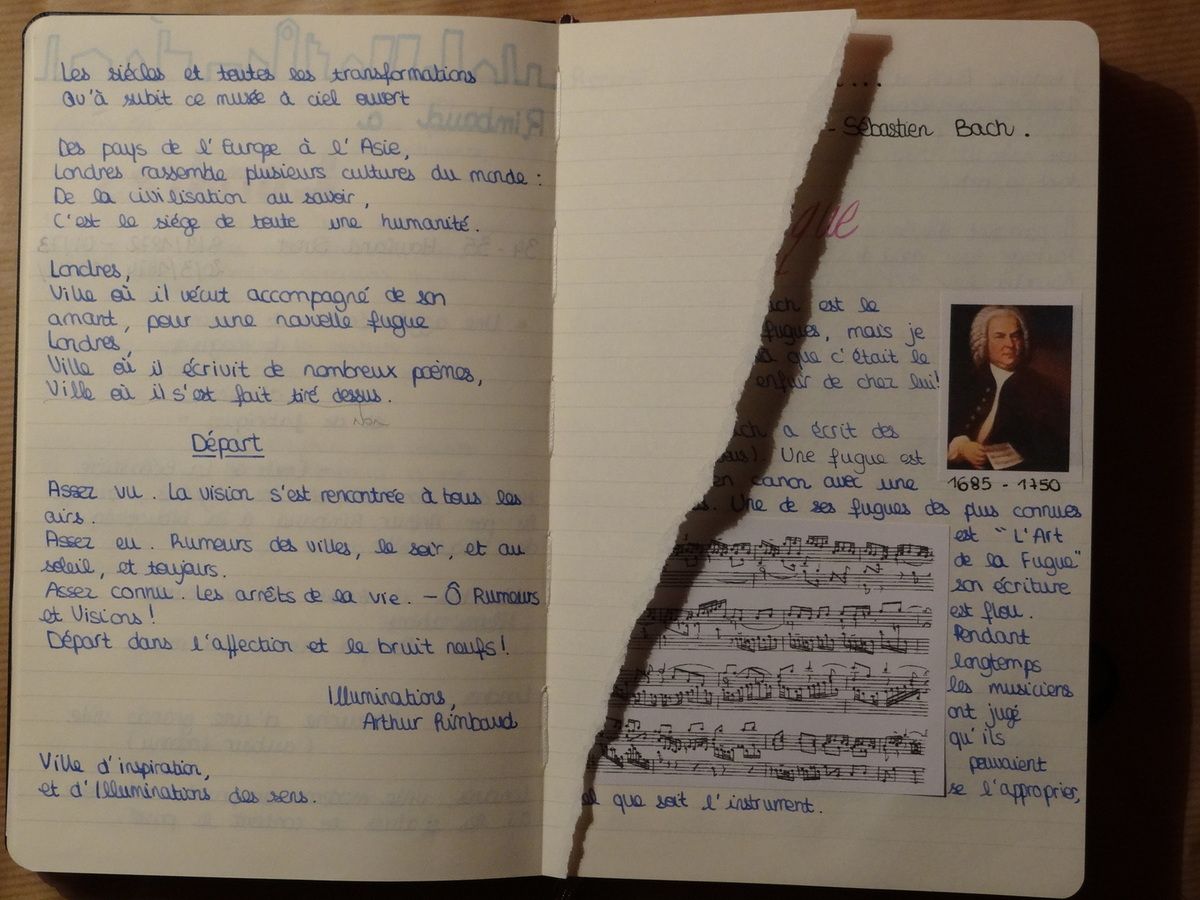 Les siécles et toutes les transformations
Qu'à subit ce musée à ciel ouvert
Des pays de l'Europe à l'Asie,
Londres rassemble plusieurs cultures du monde :
De la civilisation au savoir,
C'est le siége de toute une humanité.
Londres,
Ville où il vécut accompagné de son
amant, pour une nouvelle fugue
Londres,
Ville où il écrivit de nombreux poèmes,
Ville où il s'est fait tiré dessus.
Départ
Assez vu. La vision s'est rencontrée à tous les
airs.
Assez eu. Rumeurs des villes, le soir, et au
soleil, et toujours.
Assez connu. Les arrêts de la vie. – Ô Rumeurs
et Visions !
Départ dans l'affection et le bruit neufs !
Illuminations,
Arthur Rimbaud
Ville d'inspiration,
et d'Illuminations des sens.
Rimbaud
...
- Sébastien Bach.
gue
ich est le
fugues, mais je
que c'était le
enfuir de chez lui!
ich a écrit des
Une fugue est
en canon avec une
1685 - 1750
s. Une de ses fugues des plus connues
est "L'Art
de la Fugue"
son écriture
est flou.
Pendant
longtemps
les musiciens
ont jugé
qu'ils
pouvaient
se l'approprier,
el que soit l'instrument.